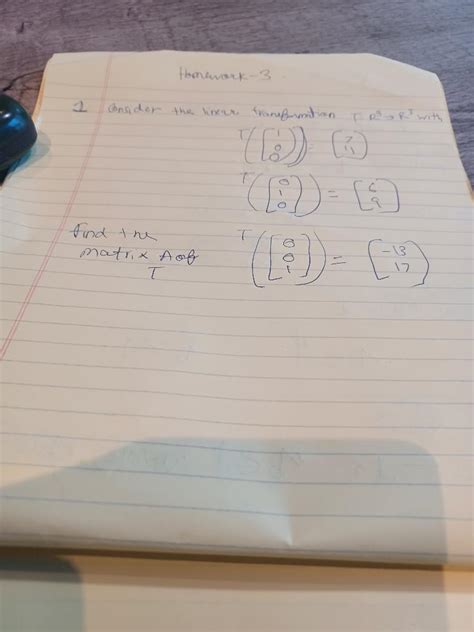 Homework - 3
1 Consider the linear transformation T: R³ → R² with
T([1 0 0]) = [7 11]
T([0 1 0]) = [6 9]
Find the
matrix A of
T
T([0 0 1]) = [-13 17]